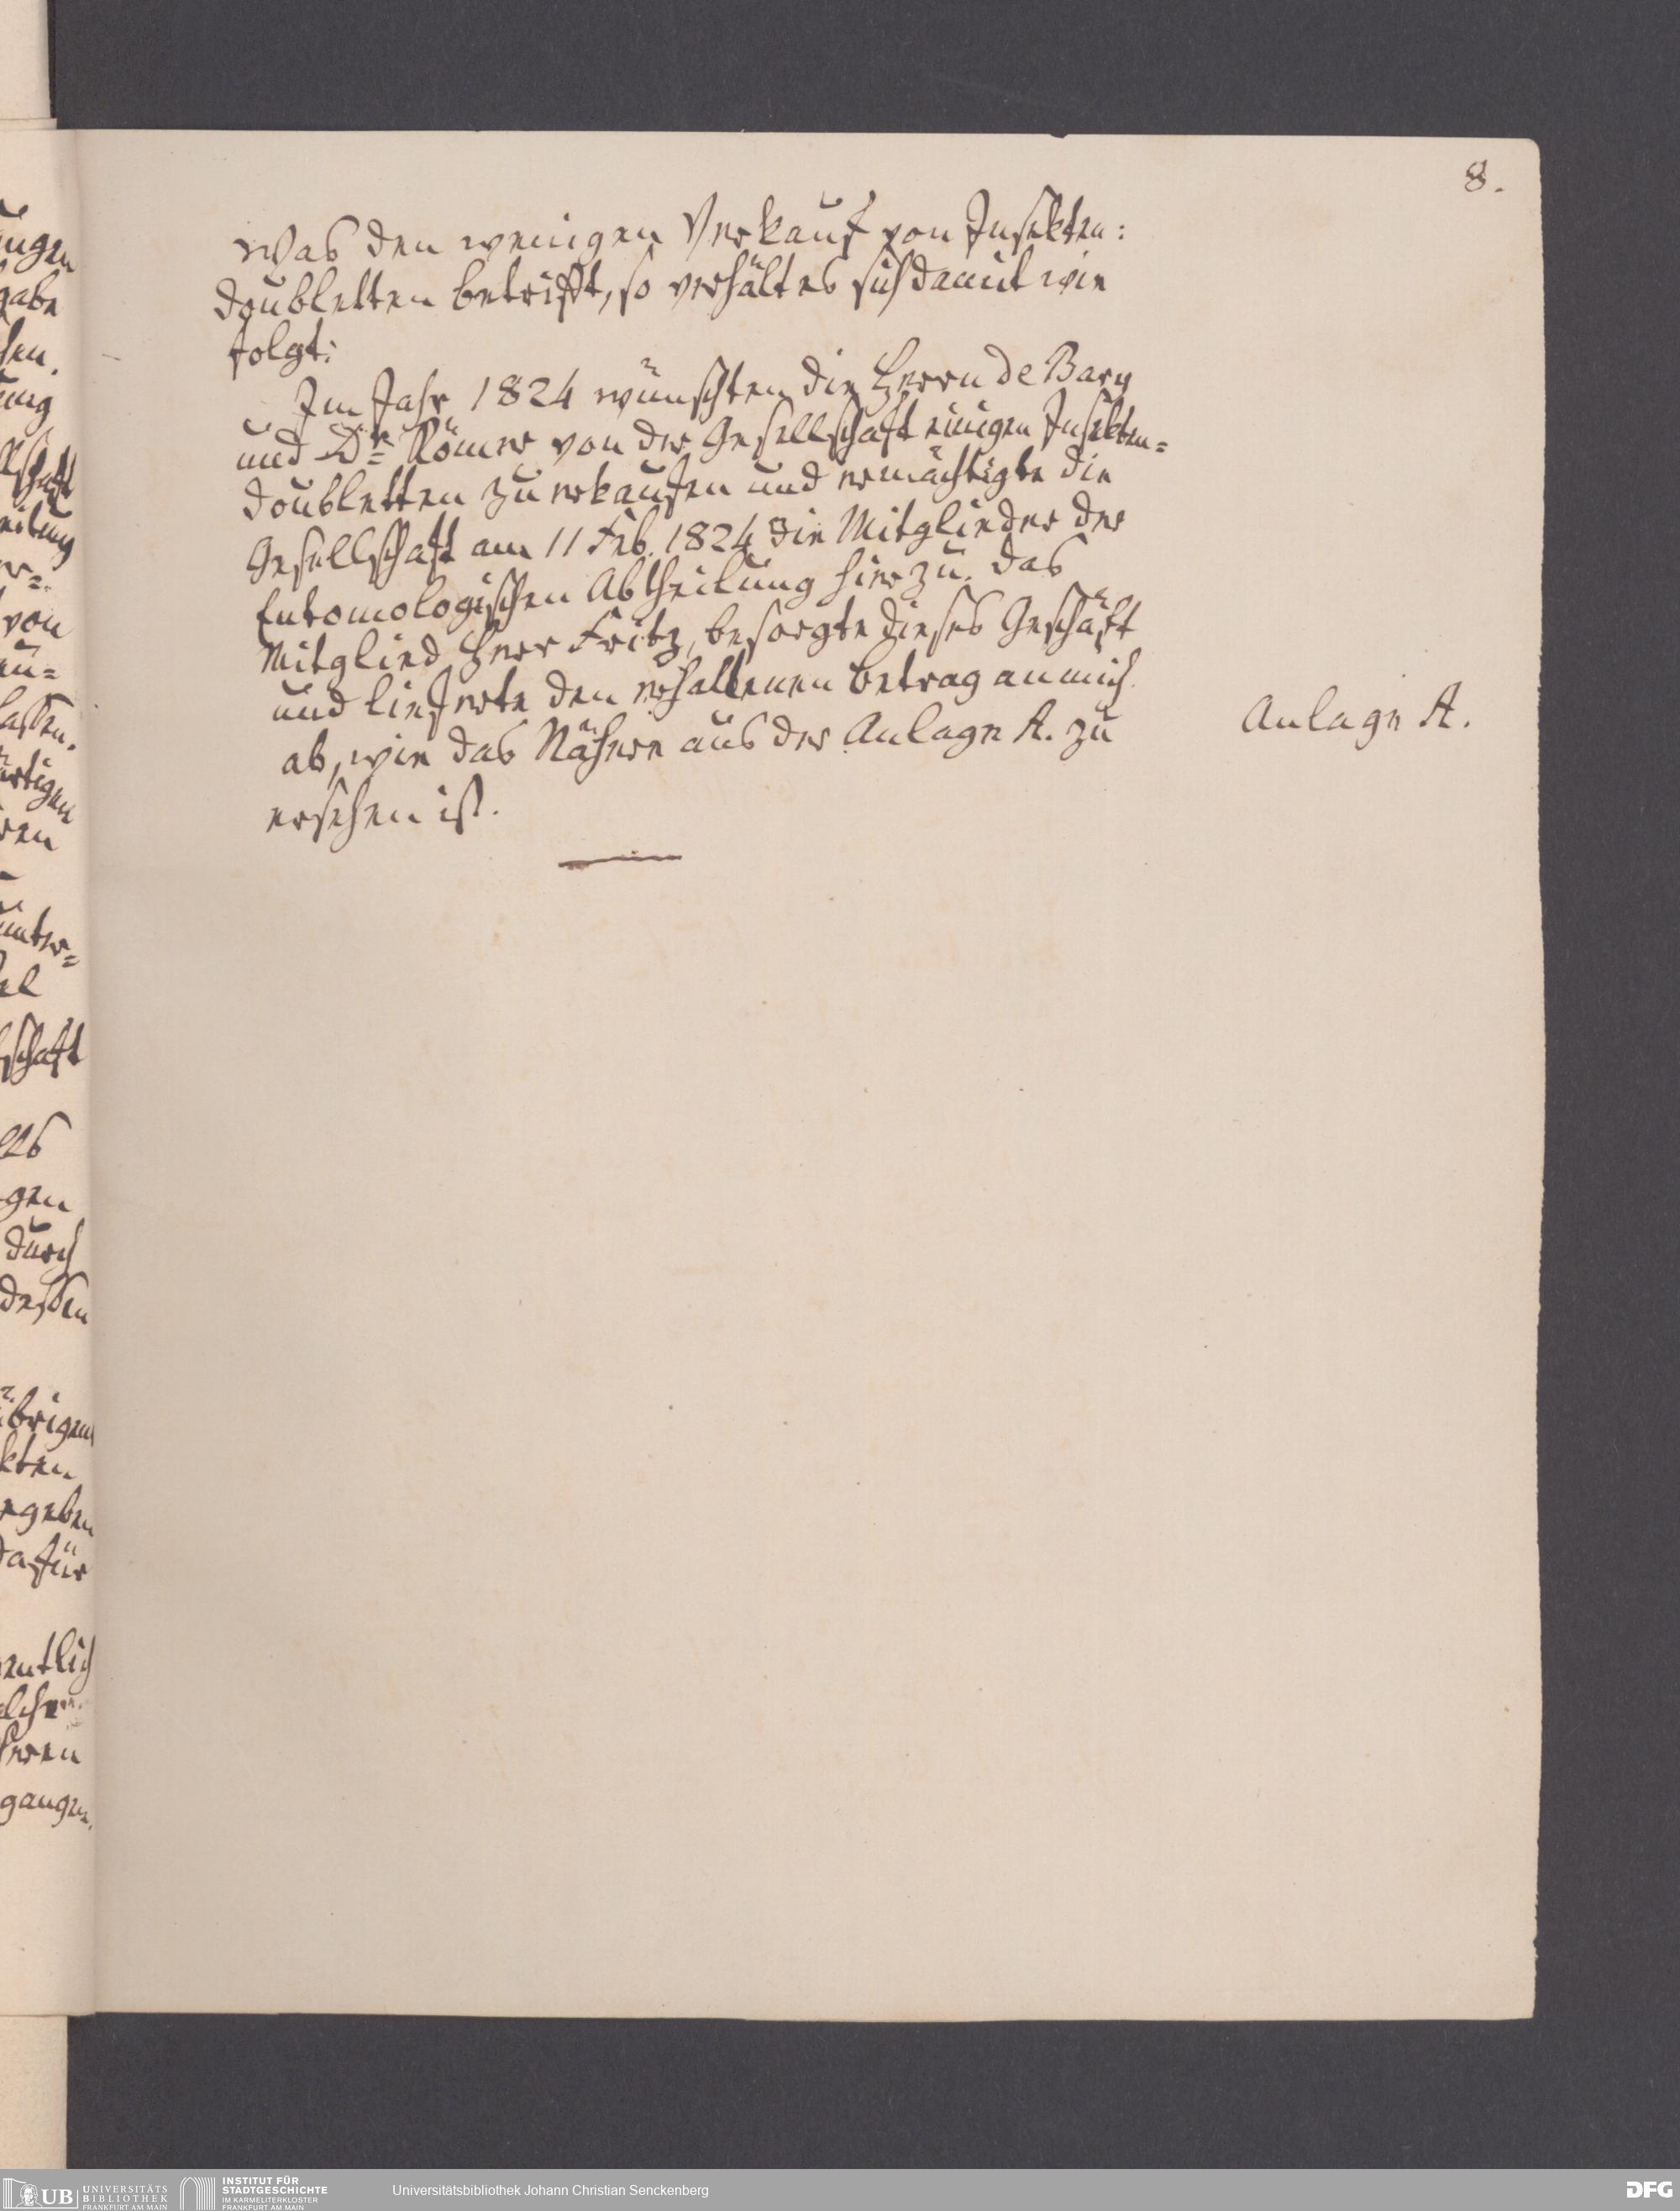 8.
Was den wenigen Verkauf von Insekten:
doubletten betrifft, so verhält es sich damit wie
folgt:
Im Jahr 1824 wünschten die Herrn de Bary
und Dr Römer von der Gesellschaft einigen Insekten=
doubletten zu erkaufen und ermächtigte die
Gesellschaft am 11 Feb. 1824 die Mitglieder der
Entomologischen Abtheilung hierzu. Das
Mitglied Herr Fritz, besorgte dieses Geschäft
und lieferte den erhaltenen Betrag an mich
ab, wie das Nähere aus der Anlage A. zu
ersehen ist.
Anlage A.
ungen
gabe
hen.
ung
von
lassen.
unter=
schaft
gen
durch
dessen
übrigen
kten
egeben
dafür
entlich
gangen.
UB UNIVERSITÄTS
BIBLIOTHEK
FRANKFURT AM MAIN
INSTITUT FÜR
STADTGESCHICHTE
IM KARMELITERKLOSTER
FRANKFURT AM MAIN
Universitätsbibliothek Johann Christian Senckenberg
DFG